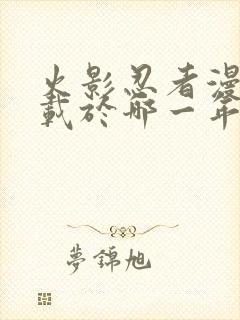 火影忍者漫
載於哪一年
夢錦旭